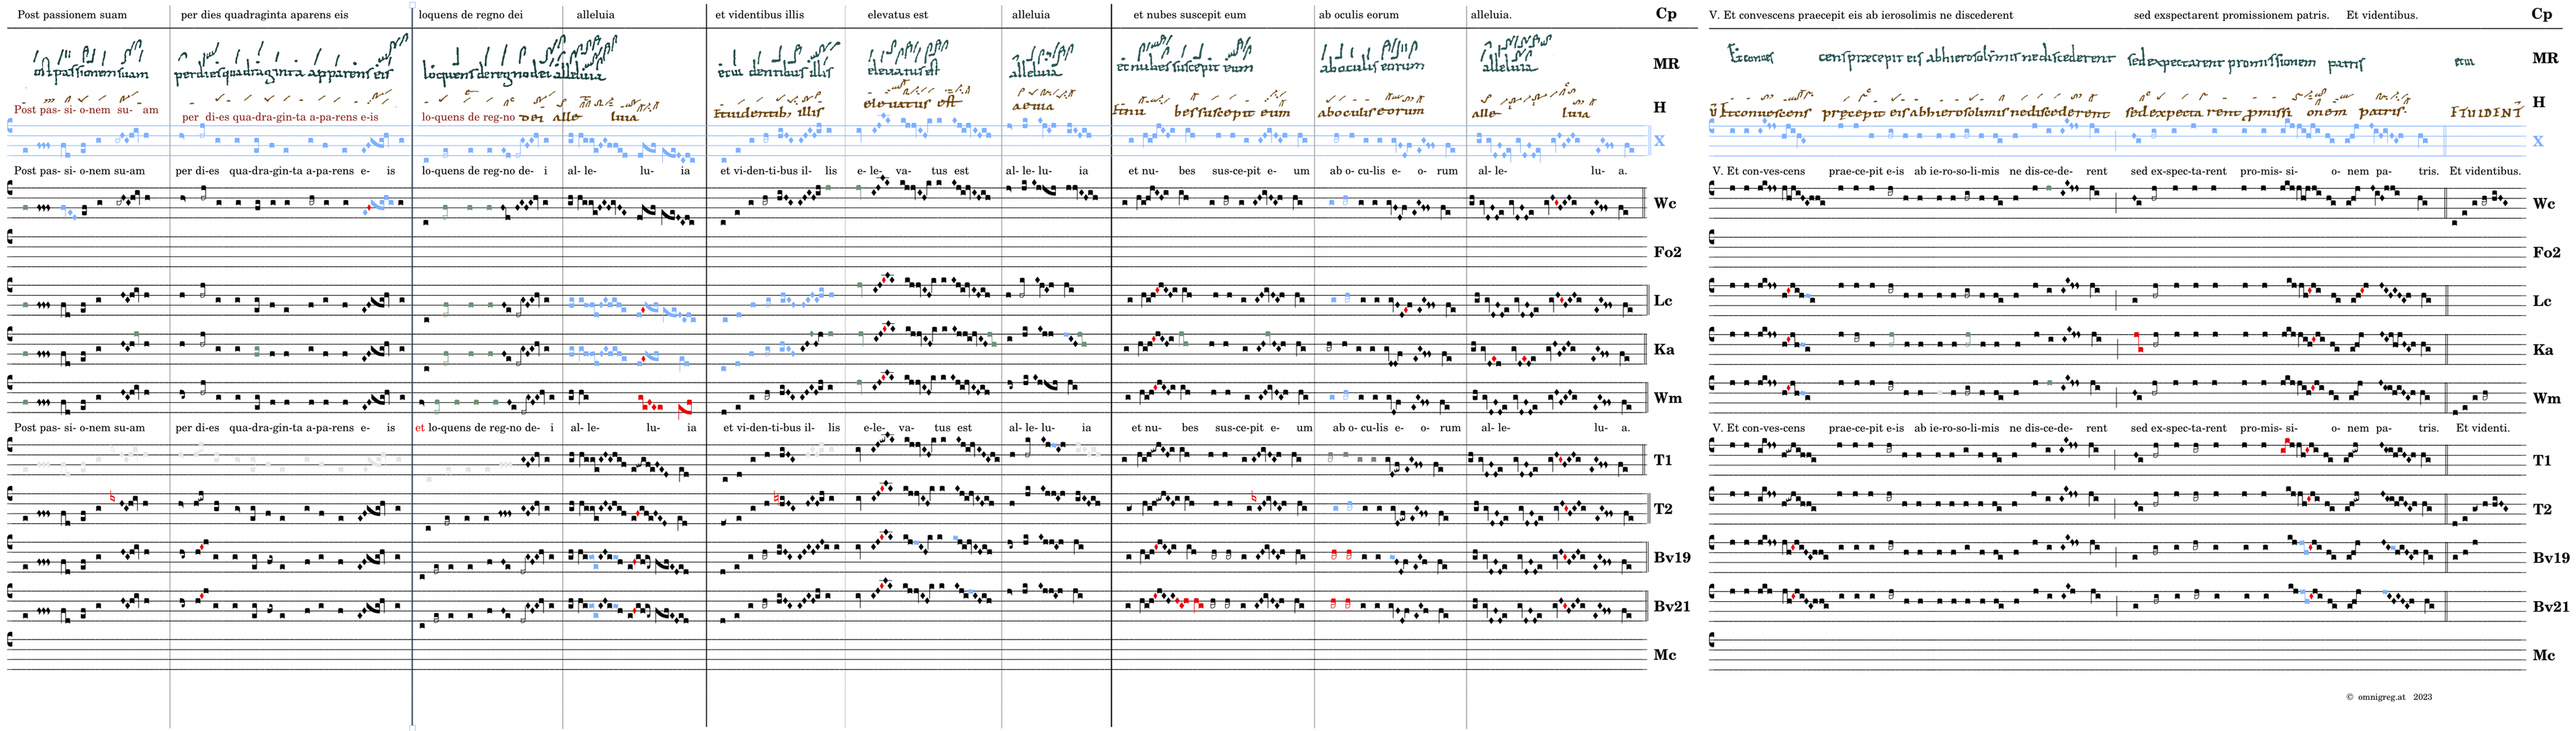 Post passionem suam per dies quadraginta aparens eis loquens de regno dei alleluia et videntibus illis elevatus est alleluia et nubes suscepit eum ab oculis eorum alleluia. Cp
V. Et convescens praecepit eis ab ierosolimis ne discederent sed exspectarent promissionem patris. Et videntibus. Cp
MR
MR
Post pas- si- o-nem su- am per di-es qua-dra-gin-ta a-pa-rens e-is lo-quens de reg-no dei alle luia
H
H
X
X
Post pas- si- o-nem su-am per di-es qua-dra-gin-ta a-pa-rens e- is lo-quens de reg-no de- i al- le- lu- ia et vi-den-ti-bus il- lis e- le- va- tus est al- le- lu- ia et nu- bes sus-ce-pit e- um ab o- cu-lis e- o- rum al- le- lu- a.
V. Et con-ves-cens prae-ce-pit e-is ab ie-ro-so-li-mis ne dis-ce-de- rent sed ex-spec-ta-rent pro-mis- si- o- nem pa- tris. Et videntibus.
Wc
Wc
Fo2
Fo2
Lc
Lc
Ka
Ka
Wm
Wm
Post pas- si- o-nem su-am per di-es qua-dra-gin-ta a-pa-rens e- is et lo-quens de reg-no de- i al- le- lu- ia et vi-den-ti-bus il- lis e-le- va- tus est al- le- lu- ia et nu- bes sus-ce-pit e- um ab o- cu-lis e- o- rum al- le- lu- a.
V. Et con-ves-cens prae-ce-pit e-is ab ie-ro-so-li-mis ne dis-ce-de- rent sed ex-spec-ta-rent pro-mis- si- o- nem pa- tris. Et videnti.
T1
T1
T2
T2
Bv19
Bv19
Bv21
Bv21
Mc
Mc
© omnigreg.at 2023